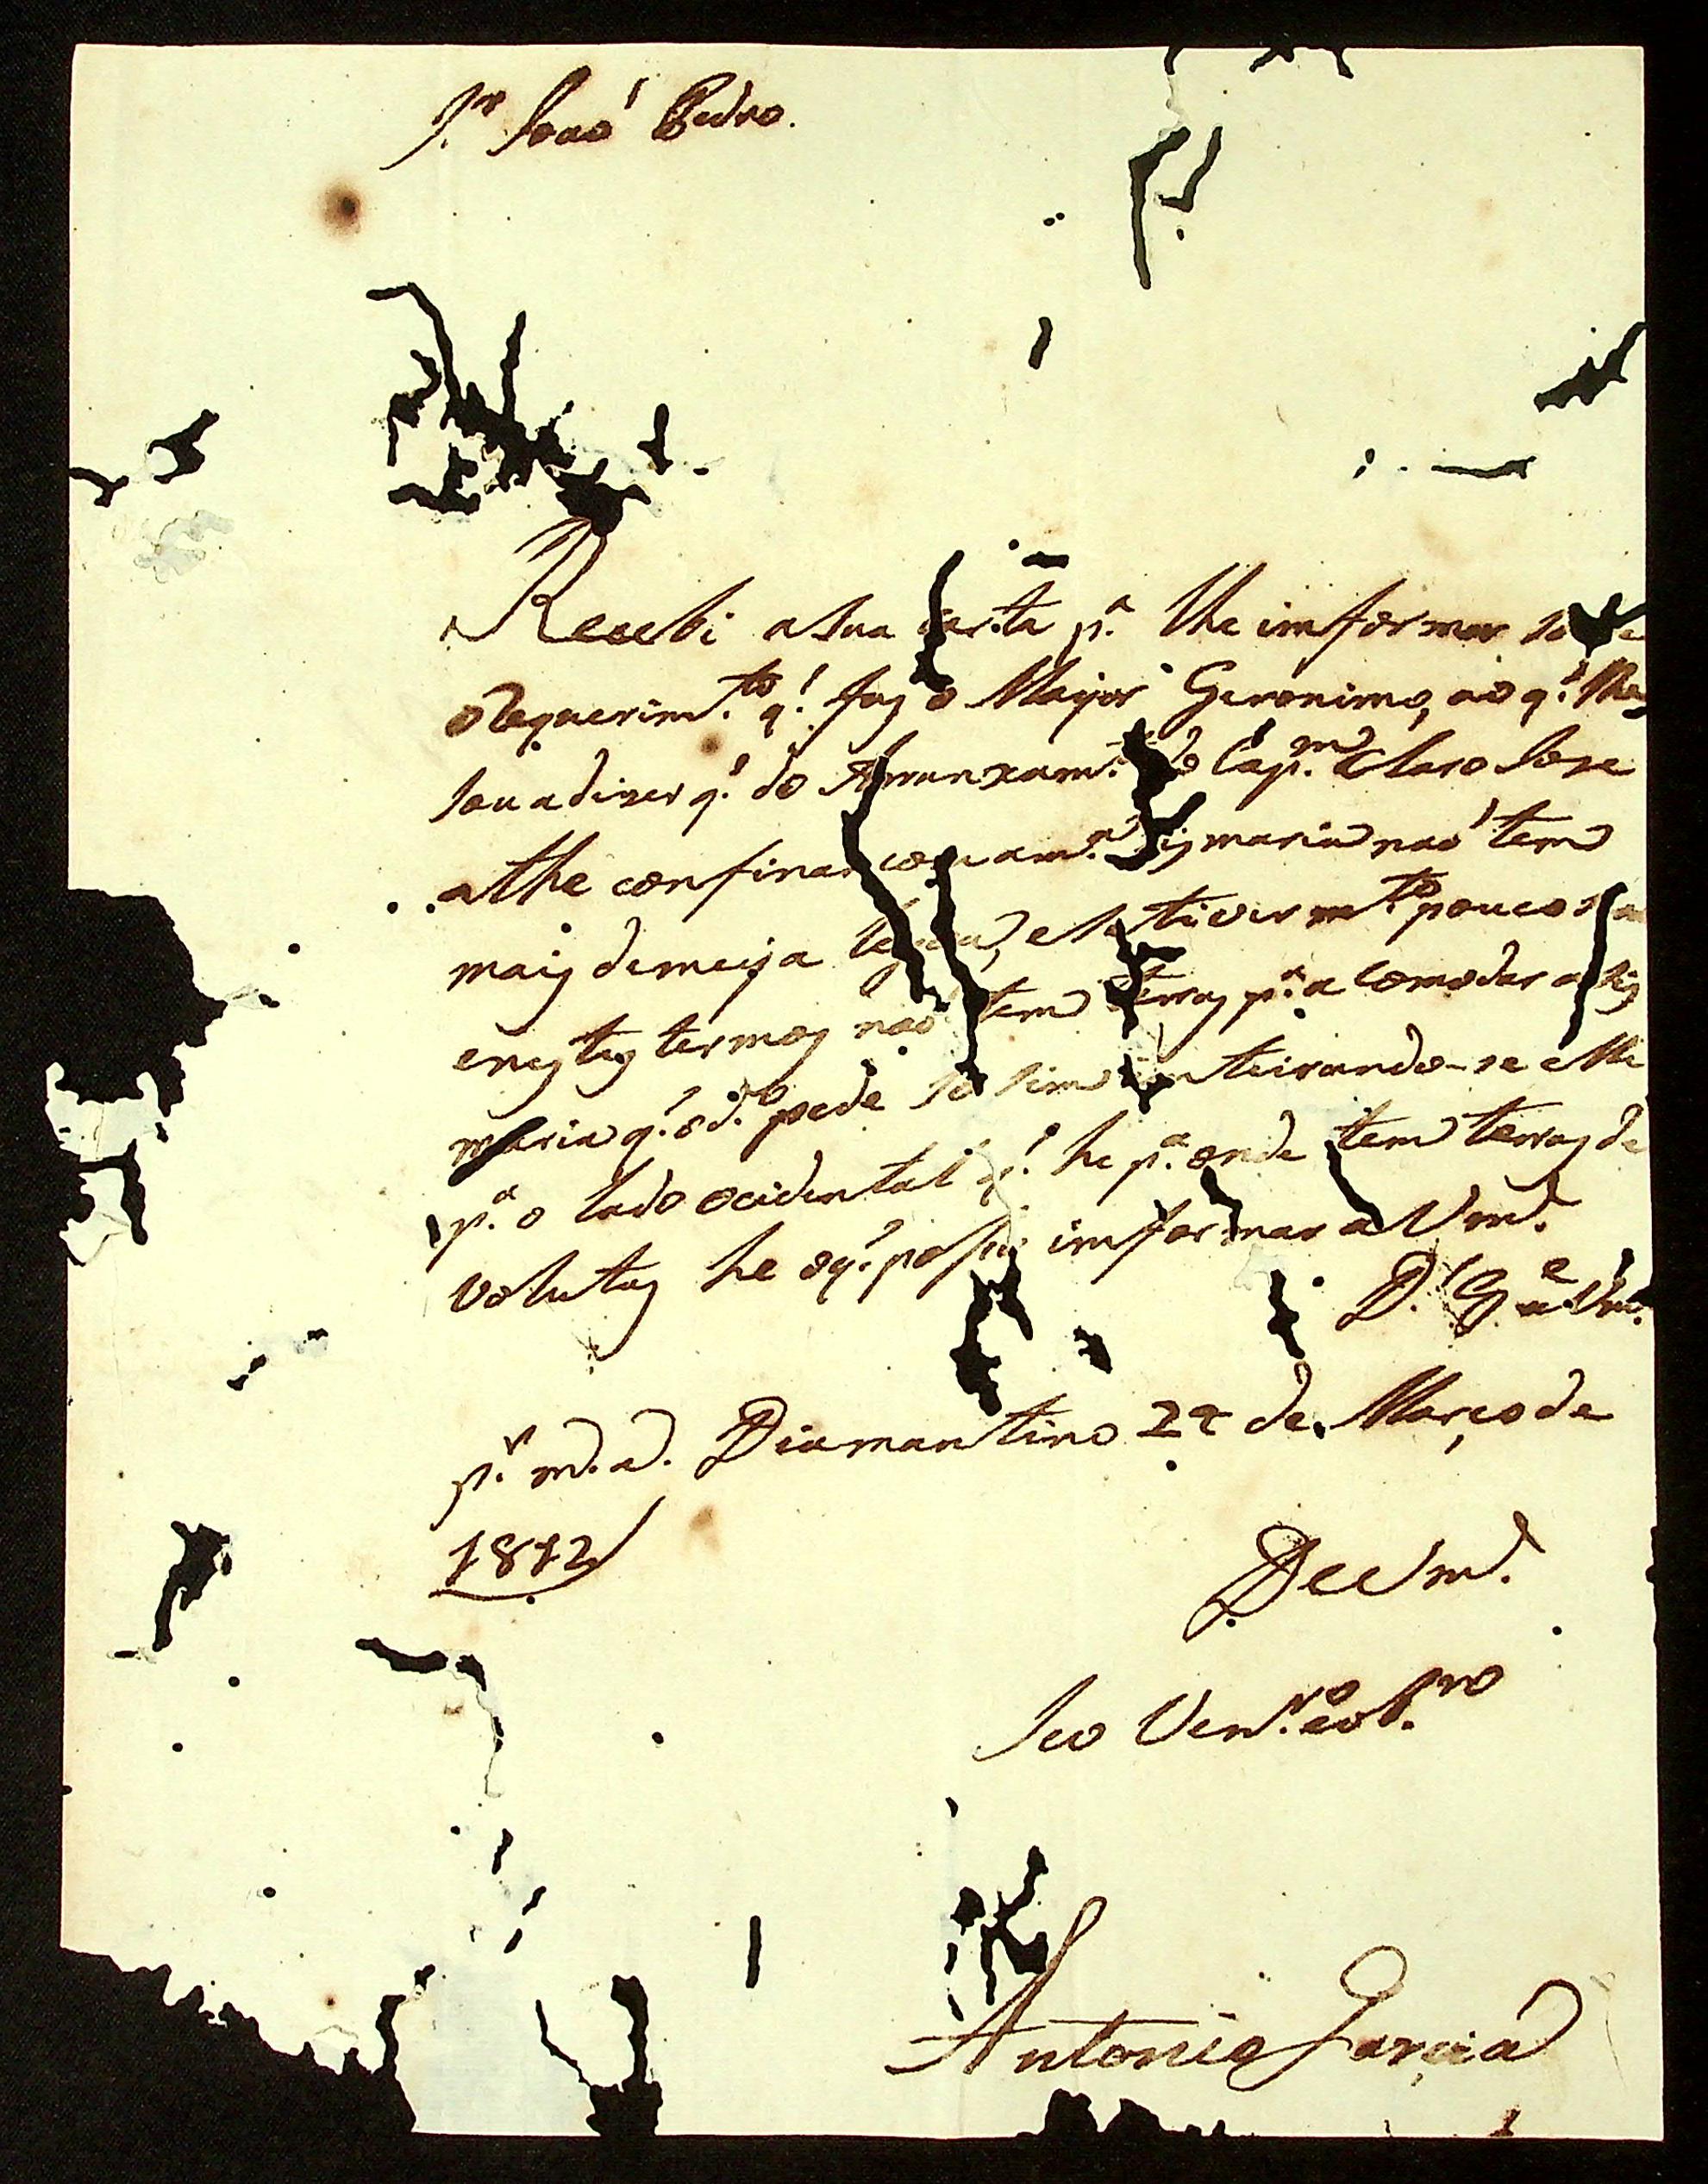 Sr. Joaõ Pedro.
Recebi a sua carta pa. lhe imformar so e
o Requerimto. q! faz o Mayor Geronimo, ao q! lhe
sou a dizer q! do Arranxamto. do Capm. Claro Jose
athe confinar com a ma. Sismaria naõ tem
mais de meya legoa, e se tiver mto. pouco
e nestes termos naõ tem terras pa. a comodar a Sis
maria q! o do. pede só sim inteirando-se
pa. o lado ocidental q! he pa. onde tem terras de
volutas he o q! posso imformar a Vm.
D. Ge. a Vm.
m. a. Diamantino 24 de Março de
1812
De Vm.
Seo Venor. e obro.
Antonio Garcia